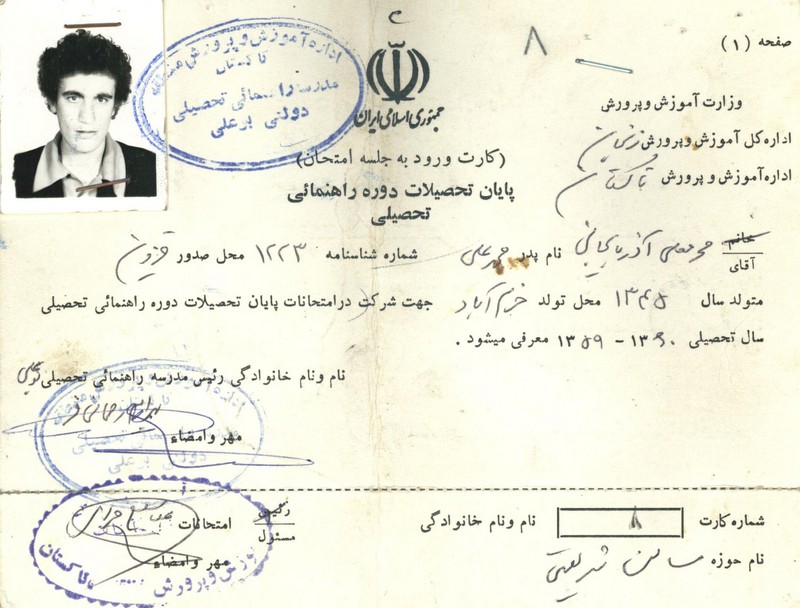 صفحه (۱)
۸
جمهوری اسلامی ایران
وزارت آموزش و پرورش
اداره کل آموزش و پرورش زنجان
اداره آموزش و پرورش تاکستان
اداره آموزش و پرورش منطقه
تاکستان
مدرسه راهنمائی تحصیلی
دولتی بوعلی
(کارت ورود به جلسه امتحان)
پایان تحصیلات دوره راهنمائی
تحصیلی
خانم
آقای
آذربایجانی نام پدر علی شماره شناسنامه ۱۲۲۳ محل صدور قزوین
متولد سال ۱۳۴۵ محل تولد خرم آباد جهت شرکت در امتحانات پایان تحصیلات دوره راهنمائی تحصیلی
سال تحصیلی ۱۳۶۰ - ۱۳۵۹ معرفی میشود .
نام و نام خانوادگی رئیس مدرسه راهنمائی تحصیلی بوعلی
مهر و امضاء
شماره کارت ۸ نام و نام خانوادگی
رئیس
مسئول
امتحانات
نام حوزه سالن شریعتی
مهر و امضاء
آموزش و پرورش تاکستان